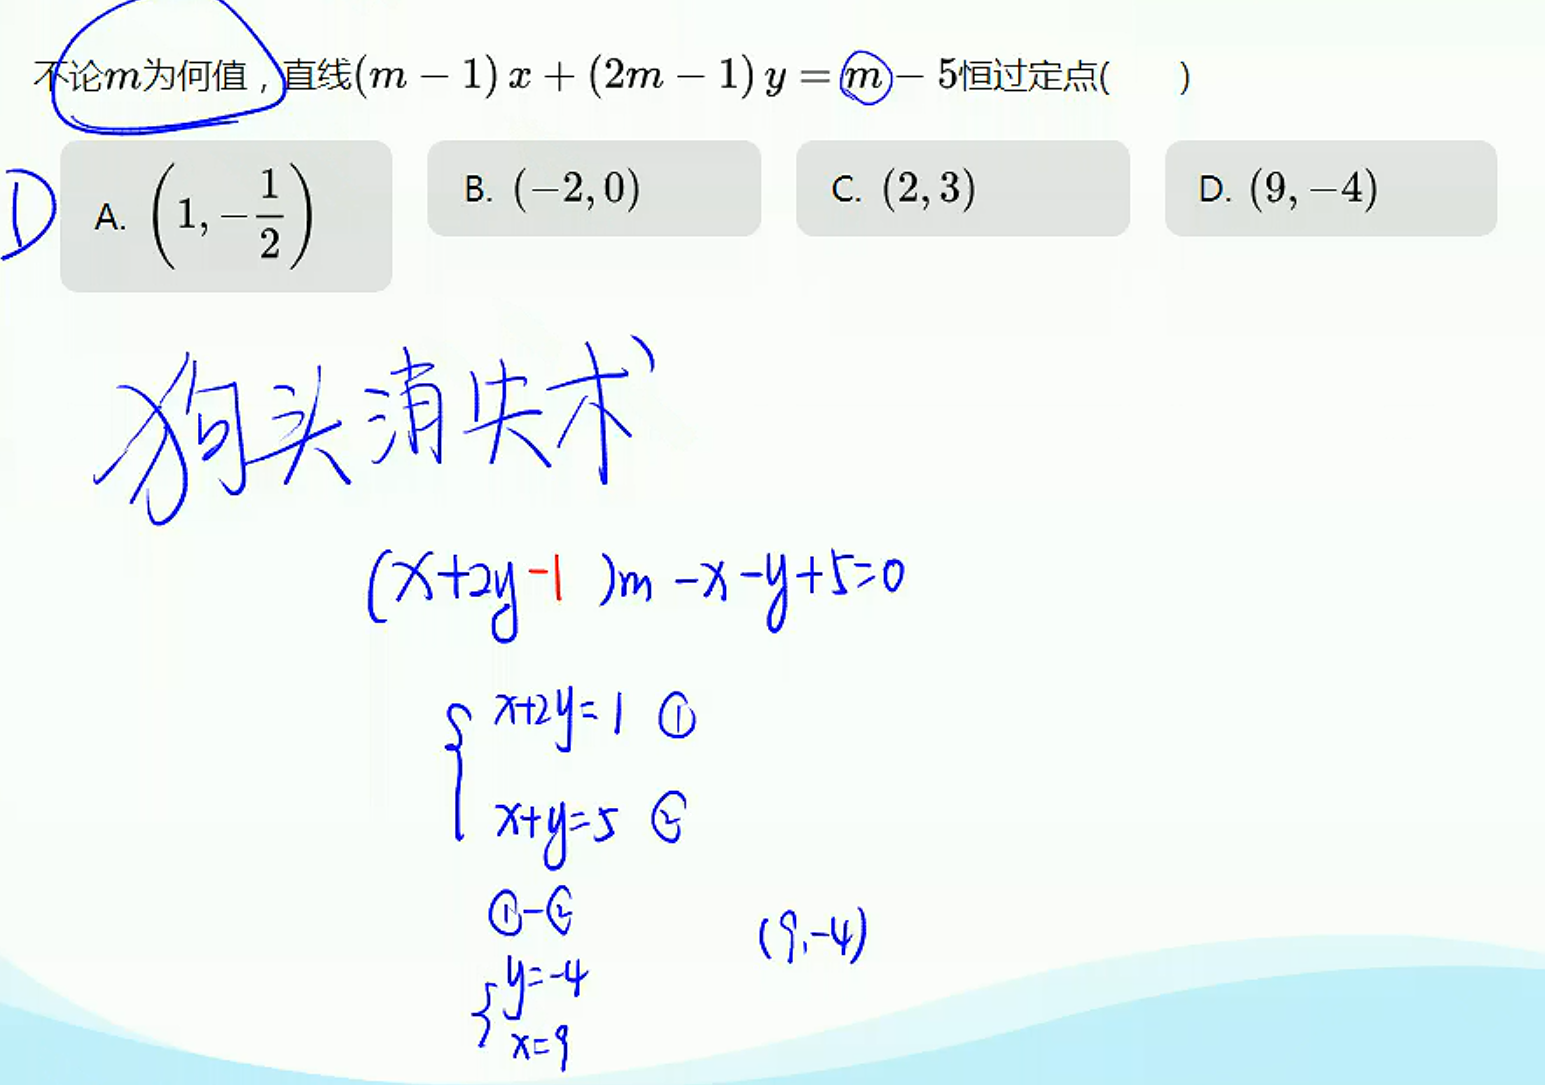 不论m为何值，直线(m − 1) x + (2m − 1) y = m − 5恒过定点(  )
D
A. (1, −1/2) B. (−2, 0) C. (2, 3) D. (9, −4)
狗头消失术
(x+2y-1 )m -x-y+5=0
{ x+2y=1 ①
x+y=5 ②
①-②
{ y=-4 (9,-4)
x=9